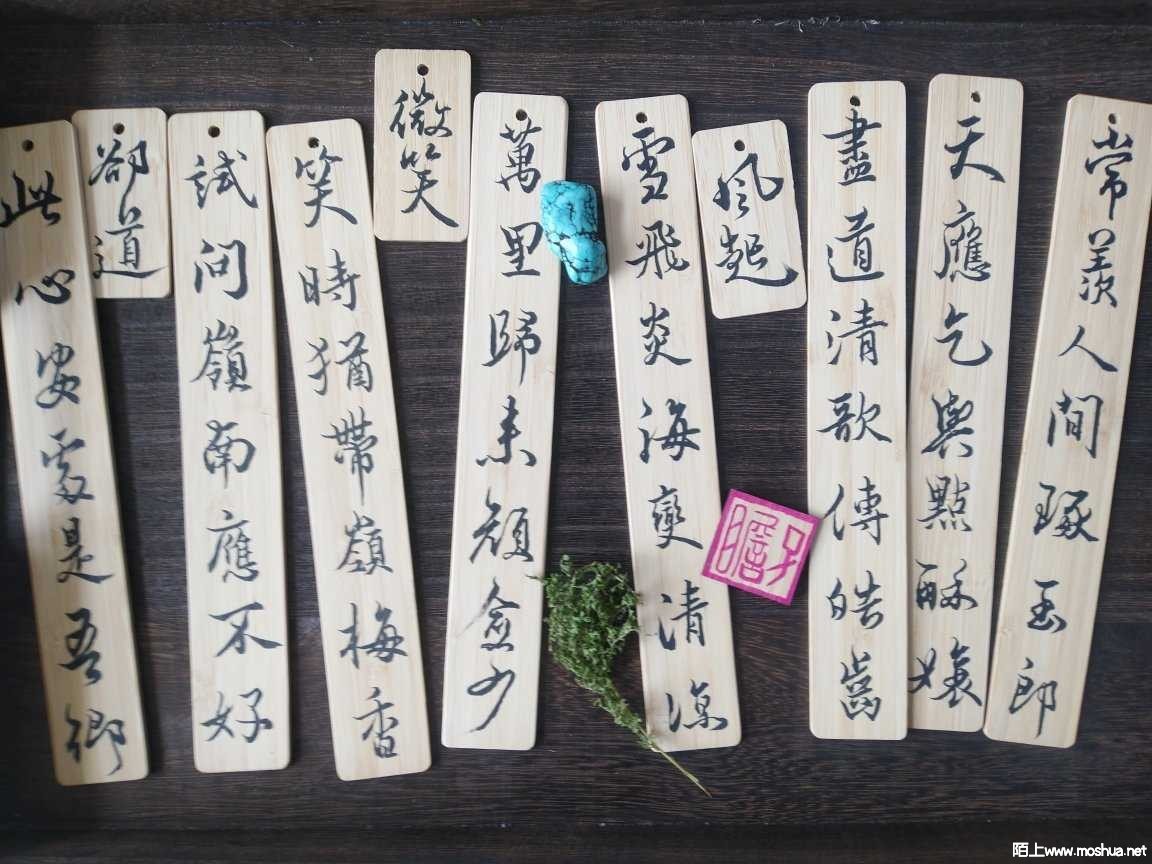 常羨人間琢玉郎
天應乞與點酥孃
盡道清歌傳皓齒
風起
雪飛炎海變清涼
萬里歸來顏愈少
微笑
笑時猶帶嶺梅香
試問嶺南應不好
卻道
此心安處是吾鄉
子瞻
陌上www.moshua.net